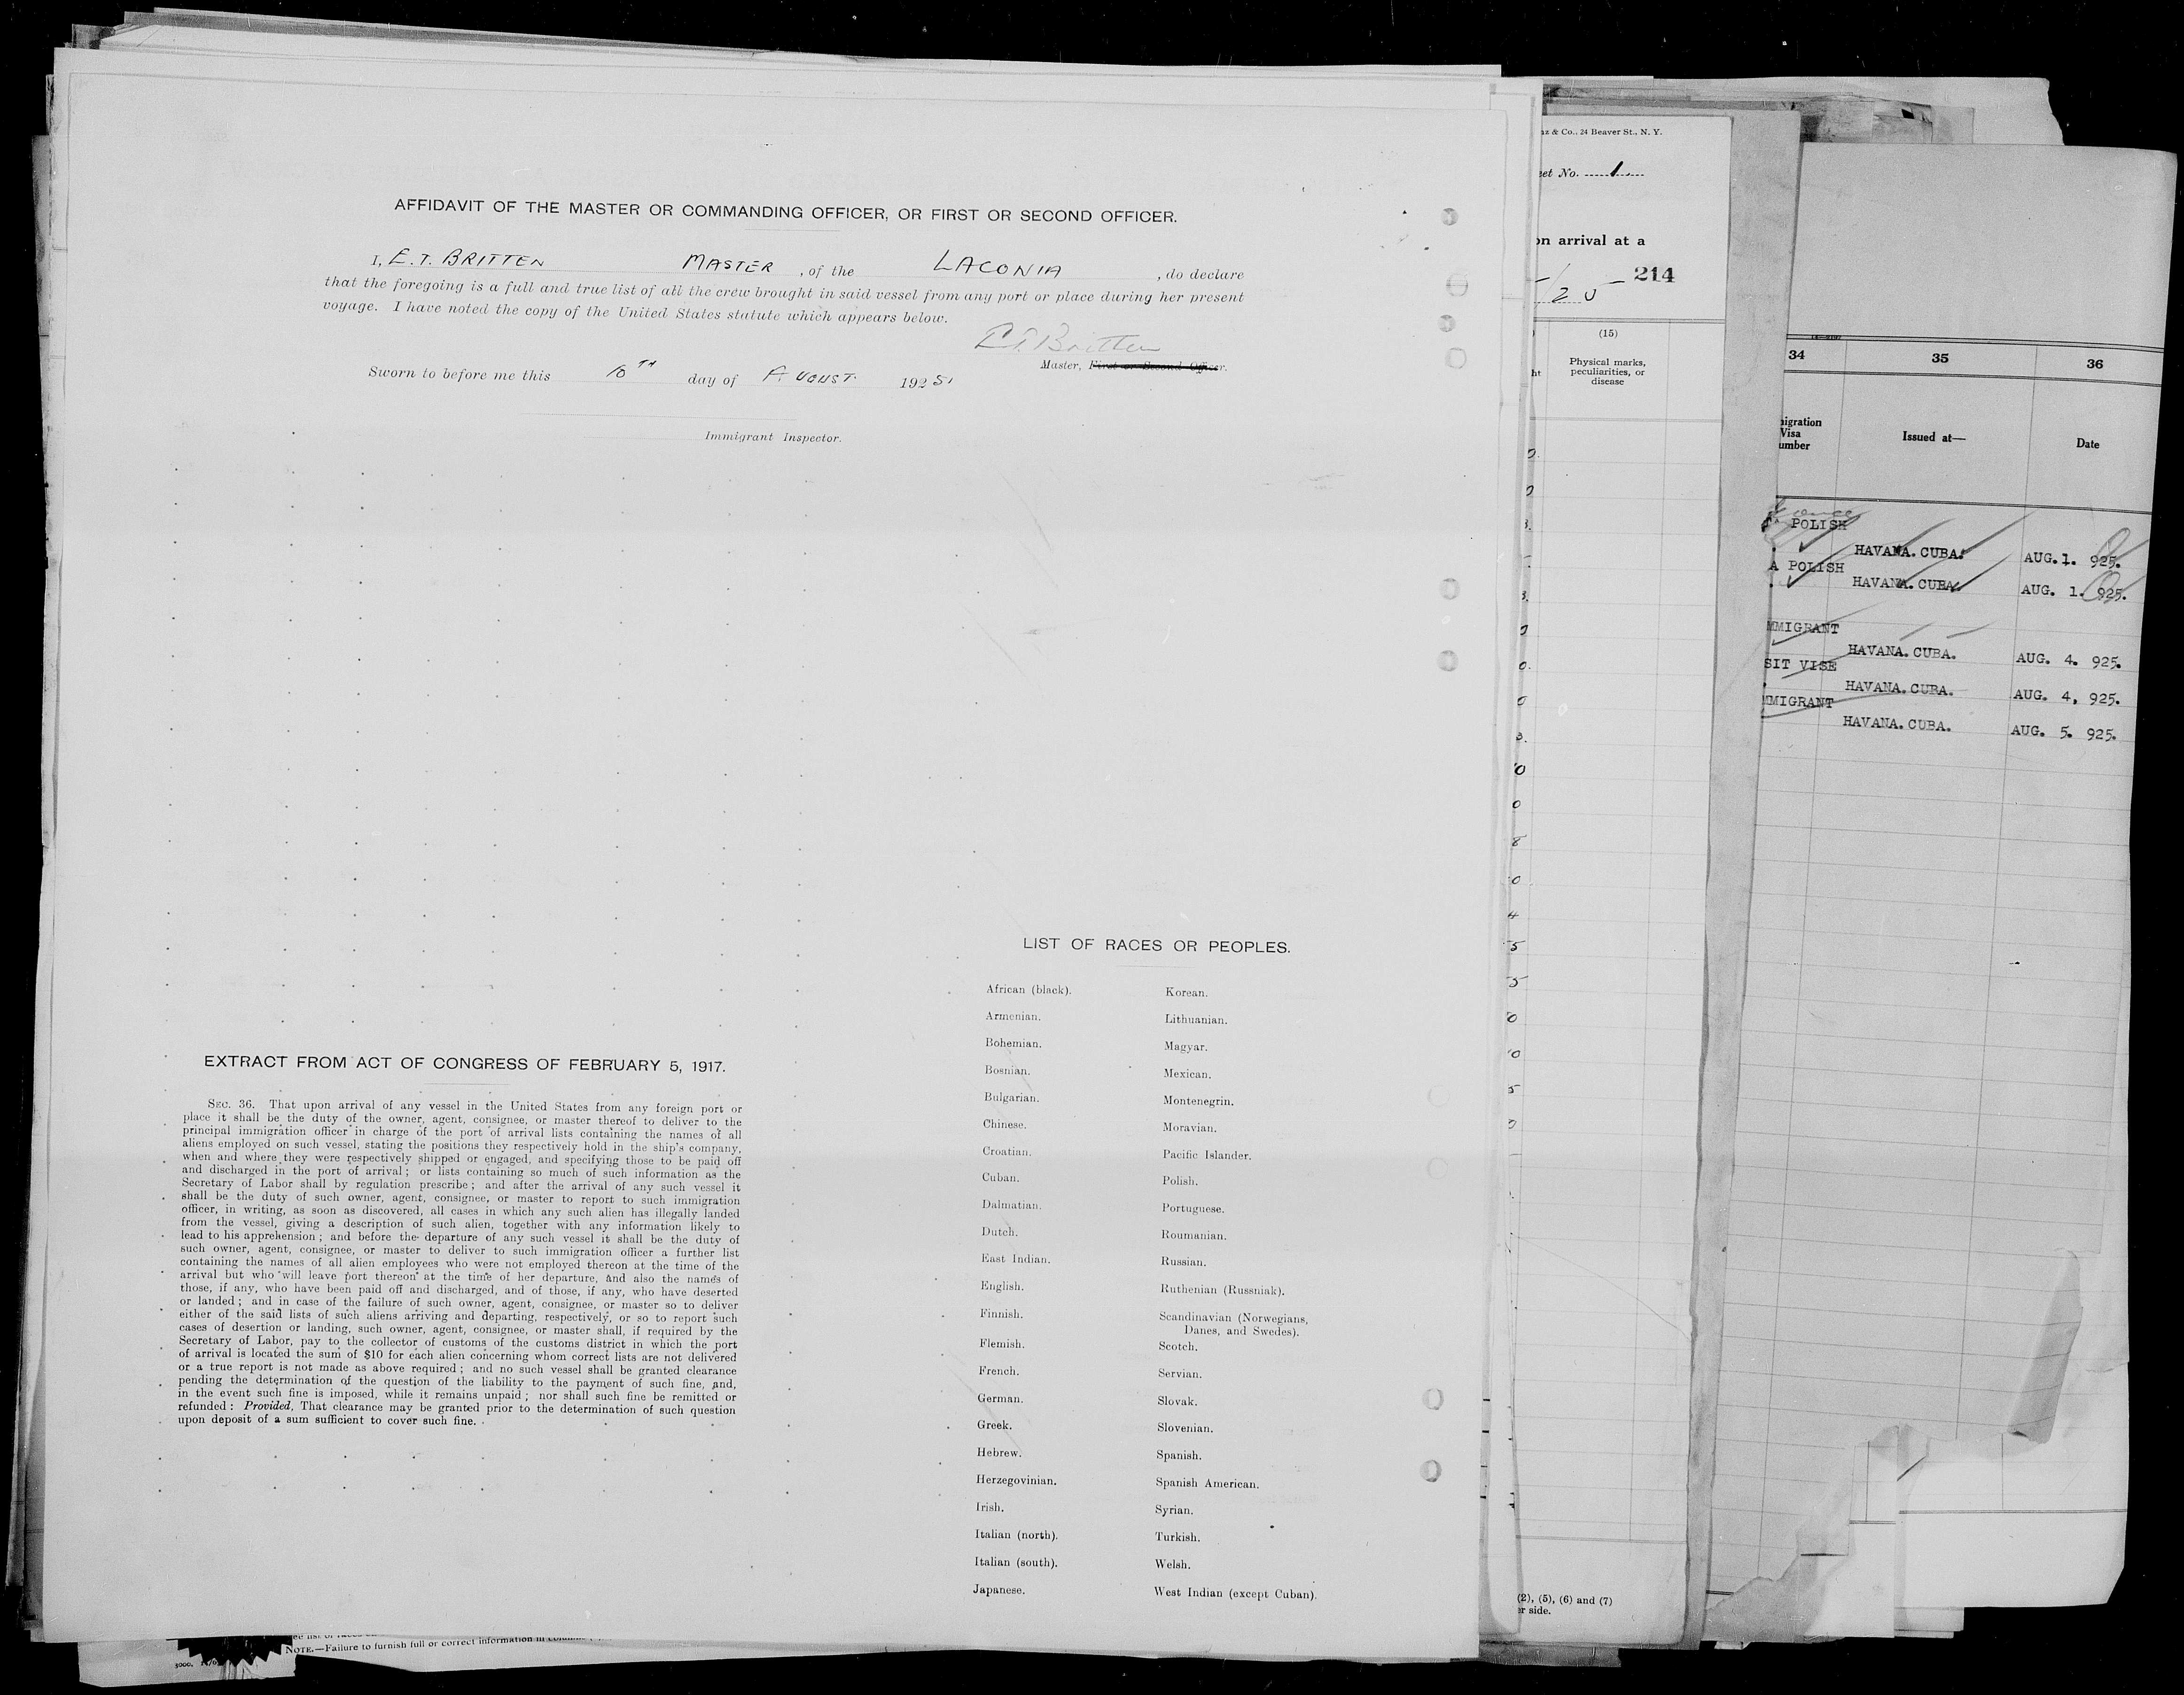 AFFIDAVIT OF THE MASTER OR COMMANDING OFFICER, OR FIRST OR SECOND OFFICER.
I, E.T. BRITTEN MASTER, of the LACONIA, do declare
that the foregoing is a full and true list of all the crew brought in said vessel from any port or place during her present
voyage. I have noted the copy of the United States statute which appears below.
E.T. Britten
Master, First or Second Officer.
Sworn to before me this 10TH day of AUGUST. 1925.
Immigrant Inspector.
LIST OF RACES OR PEOPLES.
African (black).
Armenian.
Bohemian.
Bosnian.
Bulgarian.
Chinese.
Croatian.
Cuban.
Dalmatian.
Dutch.
East Indian.
English.
Finnish.
Flemish.
French.
German.
Greek.
Hebrew.
Herzegovinian.
Irish.
Italian (north).
Italian (south).
Japanese.
Korean.
Lithuanian.
Magyar.
Mexican.
Montenegrin.
Moravian.
Pacific Islander.
Polish.
Portuguese.
Roumanian.
Russian.
Ruthenian (Russniak).
Scandinavian (Norwegians,
Danes, and Swedes).
Scotch.
Servian.
Slovak.
Slovenian.
Spanish.
Spanish American.
Syrian.
Turkish.
Welsh.
West Indian (except Cuban).
EXTRACT FROM ACT OF CONGRESS OF FEBRUARY 5, 1917.
SEC. 36. That upon arrival of any vessel in the United States from any foreign port or
place it shall be the duty of the owner, agent, consignee, or master thereof to deliver to the
principal immigration officer in charge of the port of arrival lists containing the names of all
aliens employed on such vessel, stating the positions they respectively hold in the ship's company,
when and where they were respectively shipped or engaged, and specifying those to be paid off
and discharged in the port of arrival; or lists containing so much of such information as the
Secretary of Labor shall by regulation prescribe; and after the arrival of any such vessel it
shall be the duty of such owner, agent, consignee, or master to report to such immigration
officer, in writing, as soon as discovered, all cases in which any such alien has illegally landed
from the vessel, giving a description of such alien, together with any information likely to
lead to his apprehension; and before the departure of any such vessel it shall be the duty of
such owner, agent, consignee, or master to deliver to such immigration officer a further list
containing the names of all alien employees who were not employed thereon at the time of the
arrival but who will leave port thereon at the time of her departure, and also the names of
those, if any, who have been paid off and discharged, and of those, if any, who have deserted
or landed; and in case of the failure of such owner, agent, consignee, or master so to deliver
either of the said lists of such aliens arriving and departing, respectively, or so to report such
cases of desertion or landing, such owner, agent, consignee, or master shall, if required by the
Secretary of Labor, pay to the collector of customs of the customs district in which the port
of arrival is located the sum of $10 for each alien concerning whom correct lists are not delivered
or a true report is not made as above required; and no such vessel shall be granted clearance
pending the determination of the question of the liability to the payment of such fine, and,
in the event such fine is imposed, while it remains unpaid; nor shall such fine be remitted or
refunded: Provided, That clearance may be granted prior to the determination of such question
upon deposit of a sum sufficient to cover such fine.
NOTE.—Failure to furnish full or correct information in
& Co., 24 Beaver St., N. Y.
No. 1
on arrival at a
214
(15)
Physical marks,
peculiarities, or
disease
(2), (5), (6) and (7)
side.
34 35 36
Visa
Issued at—
Date
POLISH
HAVANA. CUBA. AUG. 1. 925.
A POLISH
HAVANA. CUBA. AUG. 1. 925.
MMIGRANT
HAVANA. CUBA. AUG. 4. 925.
SIT VISE
HAVANA. CUBA. AUG. 4, 925.
MMIGRANT
HAVANA. CUBA. AUG. 5. 925.